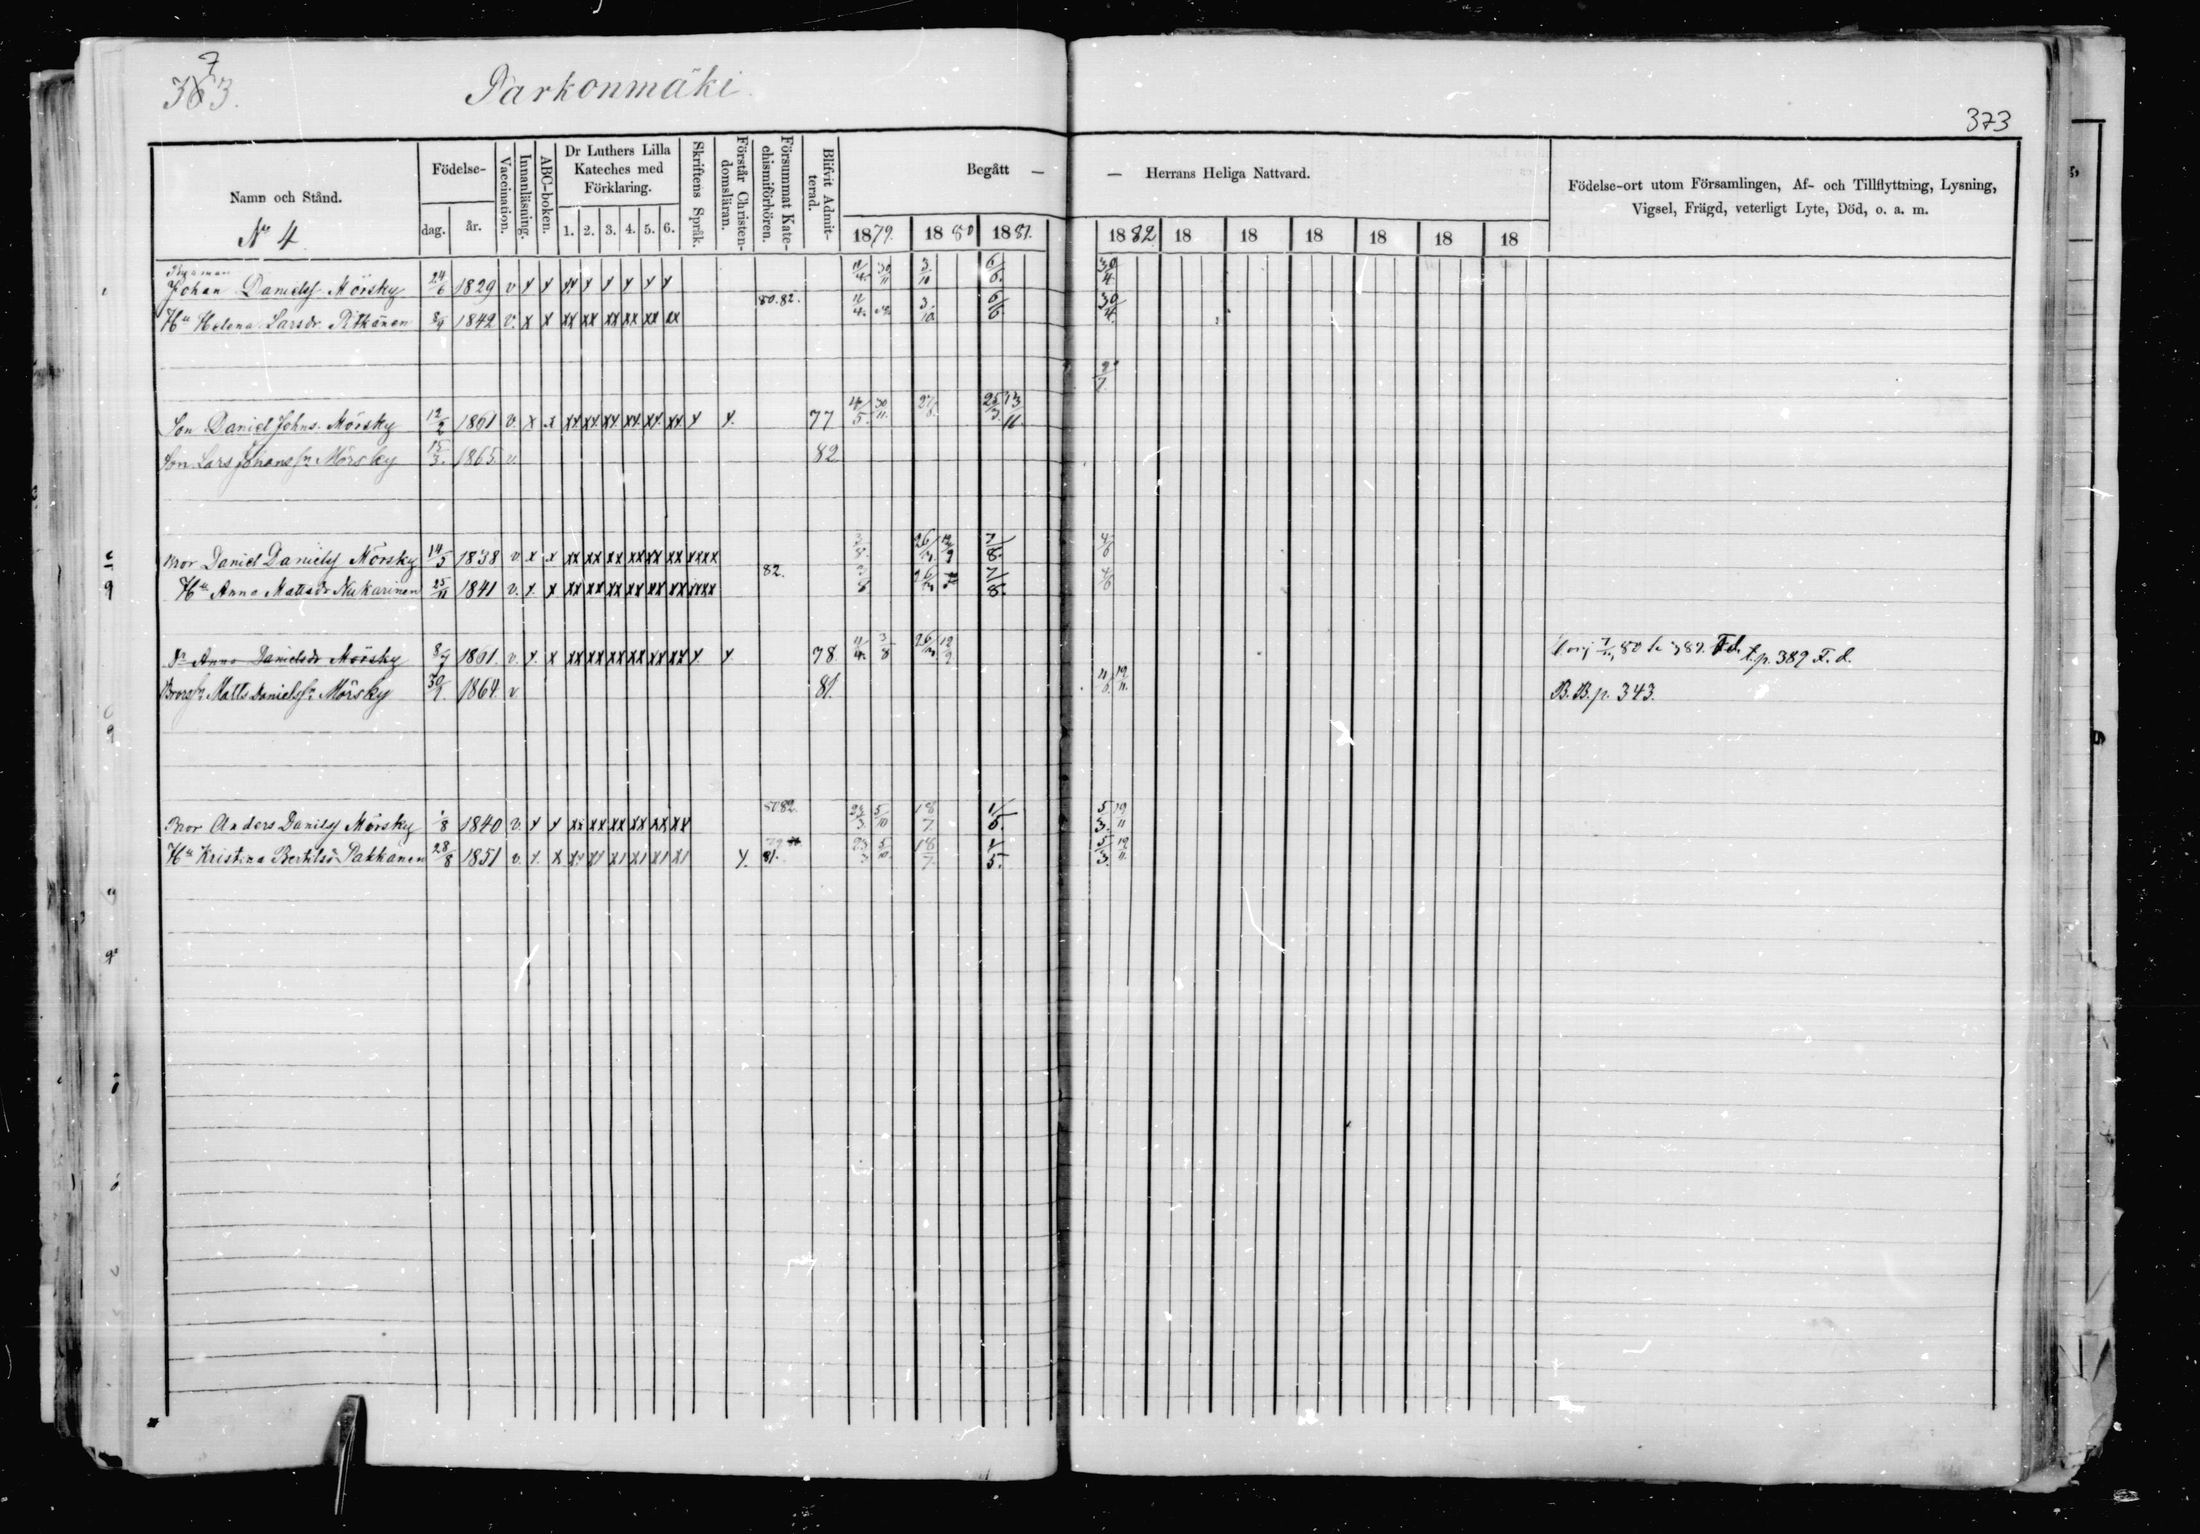 373.
Parkonmäki.
373
Namn och Stånd.
No 4
Födelse-
dag.
år.
Vaccination.
Innanläsning.
ABC-boken.
Dr Luthers Lilla
Kateches med
Förklaring.
1. 2. 3. 4. 5. 6.
Skriftens Språk.
Förstår Christen-
domsläran.
Försummat Kate-
chismiförhören.
Blifvit Admit-
terad.
Begått —
— Herrans Heliga Nattvard.
1879. 1880 1881. 1882 18 18 18 18 18 18
Födelse-ort utom Församlingen, Af- och Tillflyttning, Lysning,
Vigsel, Frägd, veterligt Lyte, Död, o. a. m.
Johan Danielsf Mörsky 24/6 1829 v x x xx x x x x x 11/4. 30/11 3/10 6/6. 30/4.
Hu Helena Larsdr. Pitkänen 8/9 1842 v. x x xx xx xx xx xx xx 80. 82. 11/4. 3/10. 6/6. 30/4.
Son Daniel Johns. Mörsky 12/2 1861 v. x x xx xx xx xx xx xx x x. 77 30/11. 25/3. 13/11.
Son Lars Johansfn Mörsky 15/3. 1865. v. 82
Bror Daniel Danielsf Mörsky 14/5 1838 v x x xx xx xx xx xx xx xxxx 3/8. 7/8. 4/6
Hu Anna Mattsdr Nukarinen 25/11 1841 v. x. x xx xx xx xx xx xx xxxx 82. 3/8 7/8. 4/6
Dr Anna Danielsdr Mörsky 8/7 1861. v. x. x xx xx xx xx xx xx x. x 78. 11/4. 3/8 80 389. F.d. t.p. 389 F. d.
Brorsfn Matts Danielsfn Mörsky 30/1. 1864. v 81. 19/11. B. B. p. 343.
Bror Anders Danilsf Mörsky 1/8 1840 v. x x xx xx xx xx xx xx 80 82. 23/3. 5/10 18/7. 1/5. 5/3. 19/11
Hu Kristina Bertilsd Pakkanen 28/8 1851 v. x. x x. 81. 23/3 5/10. 18/7. 1/5. 5/3. 19/11.